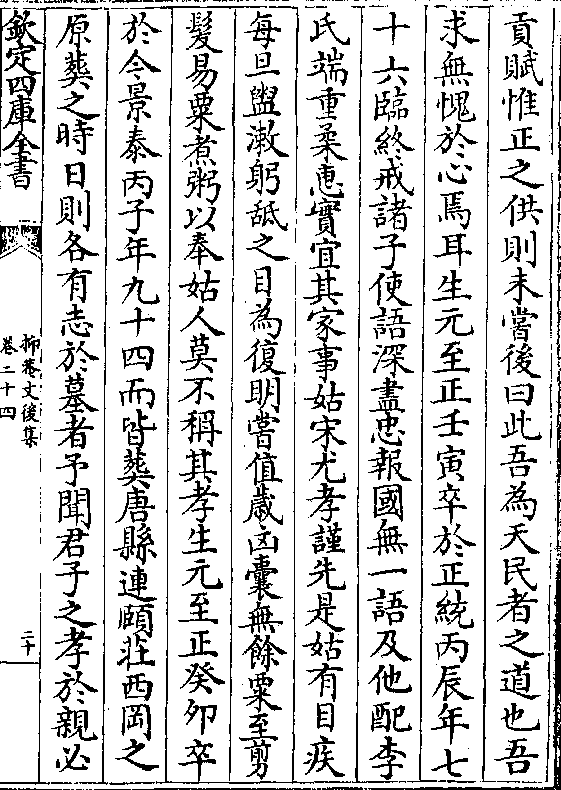 貢賦惟正之供則未嘗後曰此吾為天民者之道也吾
求無愧於心焉耳生元至正壬寅卒於正統丙辰年七
十六臨終戒諸子使語深盡忠報國無一語及他配李
氏端重柔惠實宜其家事姑宋尤孝謹先是姑有目疾
每旦盥漱躬舐之目為復明嘗值歲凶囊無餘粟至剪
髮易粟煮粥以奉姑人莫不稱其孝生元至正癸卯卒
於今景泰丙子年九十四而皆葬唐縣連頤莊西岡之
原葬之時日則各有志於墓者予聞君子之孝於親必
欽定四庫全書
抑菴文後集
卷二十四
二十